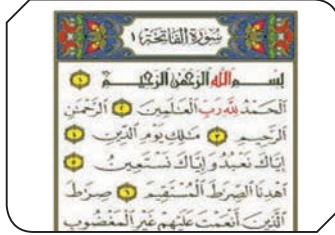 سُورَةُ الْفَاتِحَةِ ١
بِسْمِ ٱللَّهِ ٱلرَّحْمَٰنِ ٱلرَّحِيمِ ١
ٱلْحَمْدُ لِلَّهِ رَبِّ ٱلْعَٰلَمِينَ ٢ ٱلرَّحْمَٰنِ
ٱلرَّحِيمِ ٣ مَٰلِكِ يَوْمِ ٱلدِّينِ ٤
إِيَّاكَ نَعْبُدُ وَإِيَّاكَ نَسْتَعِينُ ٥
ٱهْدِنَا ٱلصِّرَٰطَ ٱلْمُسْتَقِيمَ ٦ صِرَٰطَ
ٱلَّذِينَ أَنْعَمْتَ عَلَيْهِمْ غَيْرِ ٱلْمَغْضُوبِ